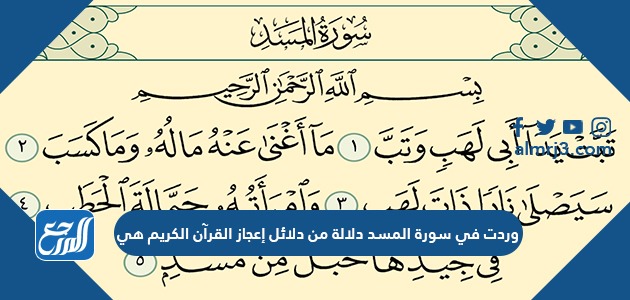 سُورَةُ المَسَدِ
بِسْمِ اللَّهِ الرَّحْمَٰنِ الرَّحِيمِ
تَبَّتْ يَدَآ أَبِى لَهَبٍ وَتَبَّ ١ مَآ أَغْنَىٰ عَنْهُ مَالُهُۥ وَمَا كَسَبَ ٢
almrj3.com
سَيَصْلَىٰ نَارًا ذَاتَ لَهَبٍ ٣ وَٱمْرَأَتُهُۥ حَمَّالَةَ ٱلْحَطَبِ ٤
وردت في سورة المسد دلالة من دلائل إعجاز القرآن الكريم هي
المرجع
فِى جِيدِهَا حَبْلٌ مِّن مَّسَدٍۭ ٥